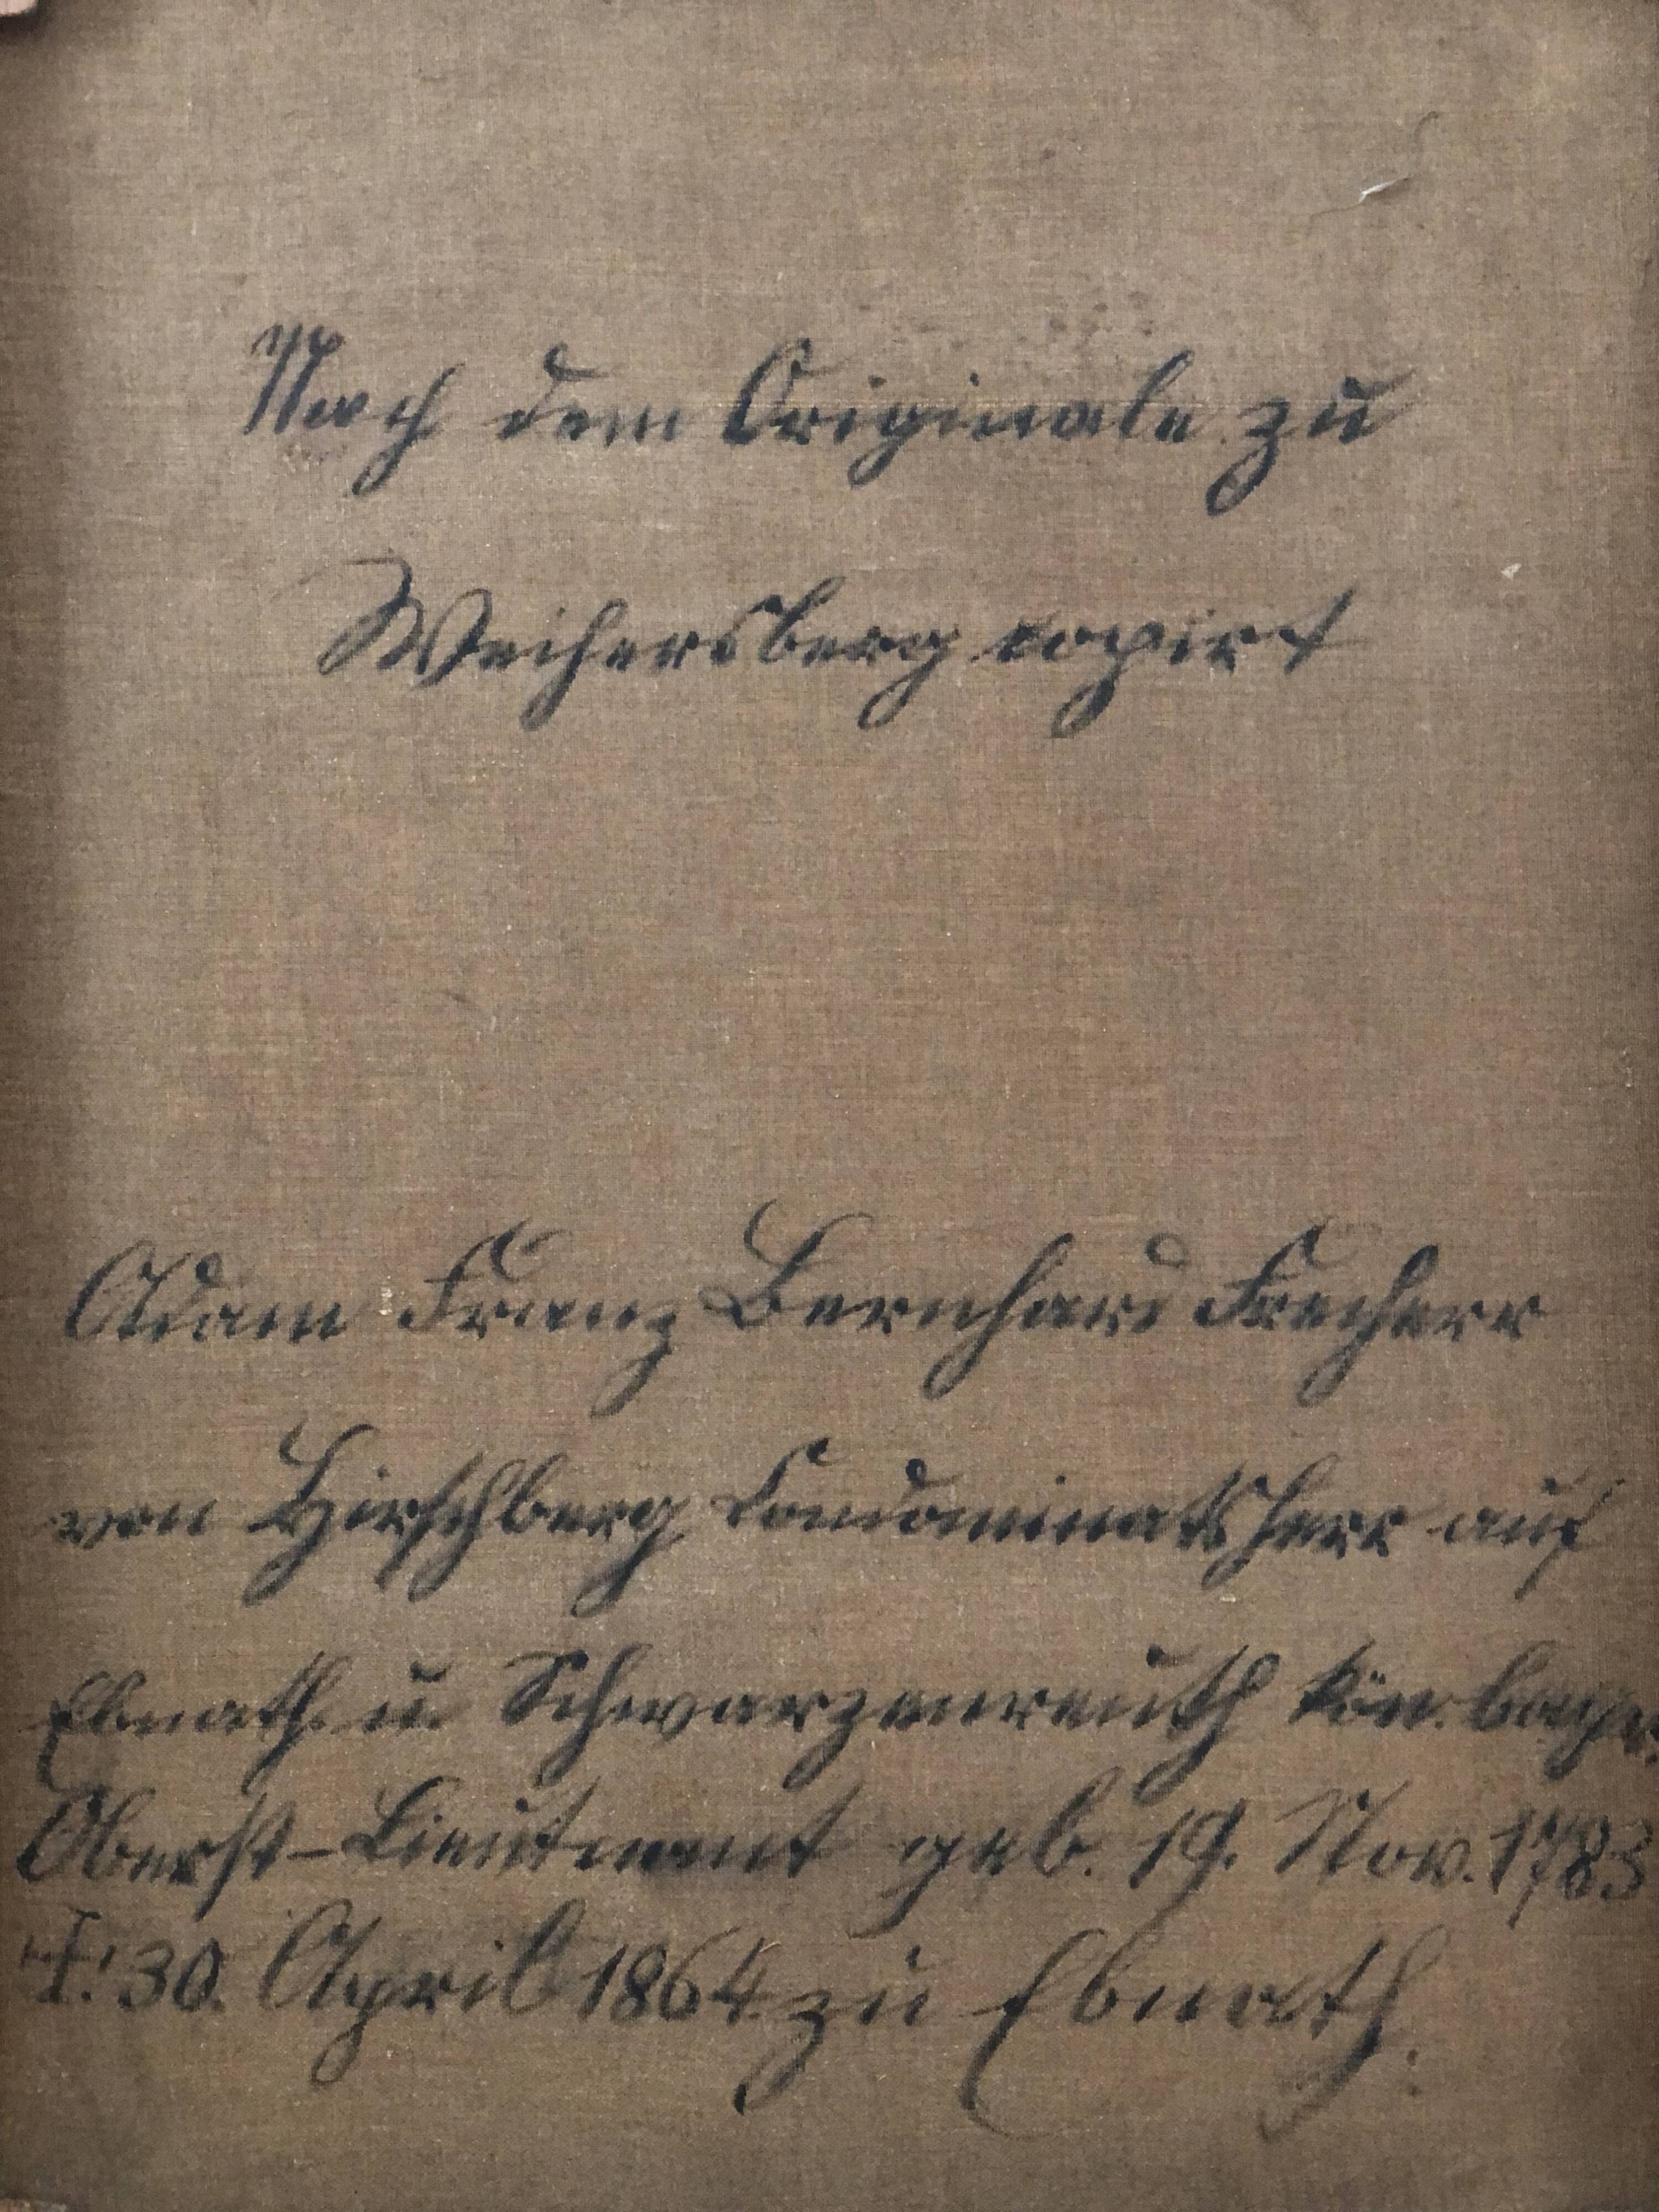 Nach dem Originale zu
Weihersberg copirt
Adam Franz Bernhard Freyherr
von Hirschberg Condominatsherr auf
Ebnath u Schwarzenreuth kön. bayer.
Oberst-Lieutnant geb. 19. Nov. 1783
†. 30. April 1864 zu Ebnath.